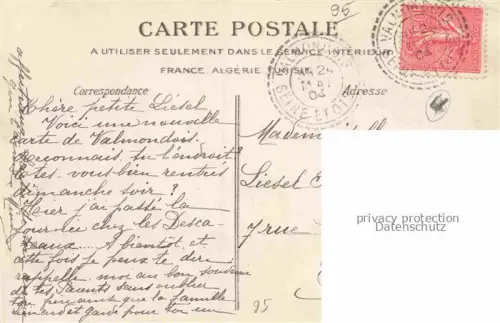 95
CARTE POSTALE
A UTILISER SEULEMENT DANS LE SERVICE INTÉRIEUR
FRANCE, ALGÉRIE, TUNISIE
Correspondance
Adresse
VALMONDOIS
24
MAI
04
SEINE ET OISE
Chère petite Liesel
Voici une nouvelle
carte de Valmondois.
Reconnais-tu l'endroit?
Êtes-vous bien rentrés
dimanche soir?
Hier j'ai passé la
journée chez les Desca-
teaux.... A bientôt, et
cette fois je peux te dire
rappelle moi au bon souvenir
de tes parents sans oublier
ton ainsi que ta famille
et garde pour toi un
affectueux
Madem
Liesel
7 rue
privacy protection
Datenschutz
95